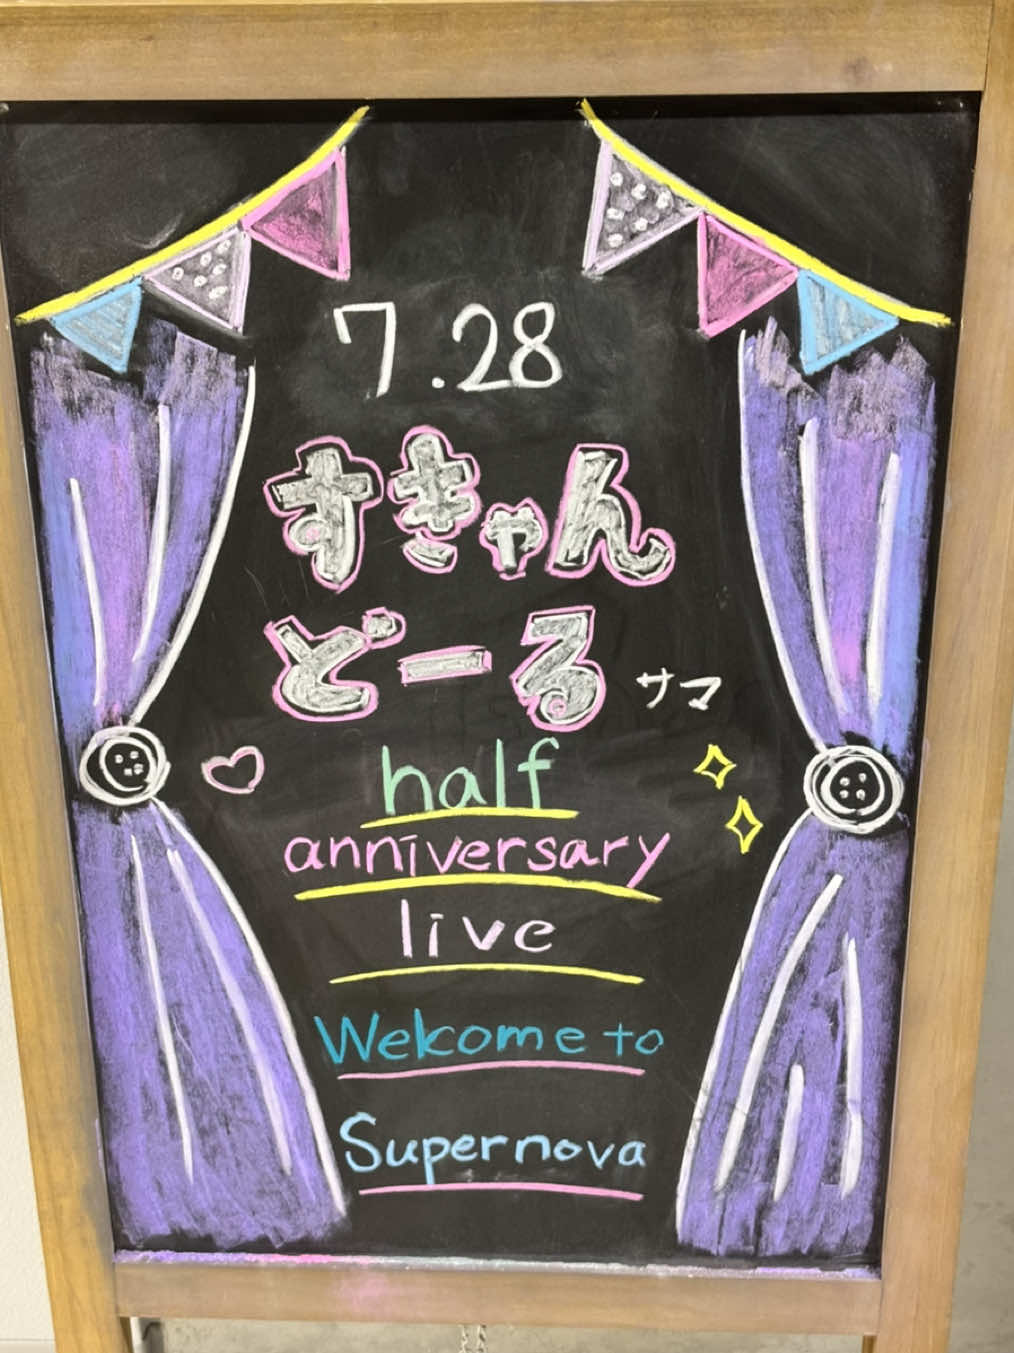 7.28
すきゃん
どーるサマ
half
anniversary
live
Welcome to
Supernova